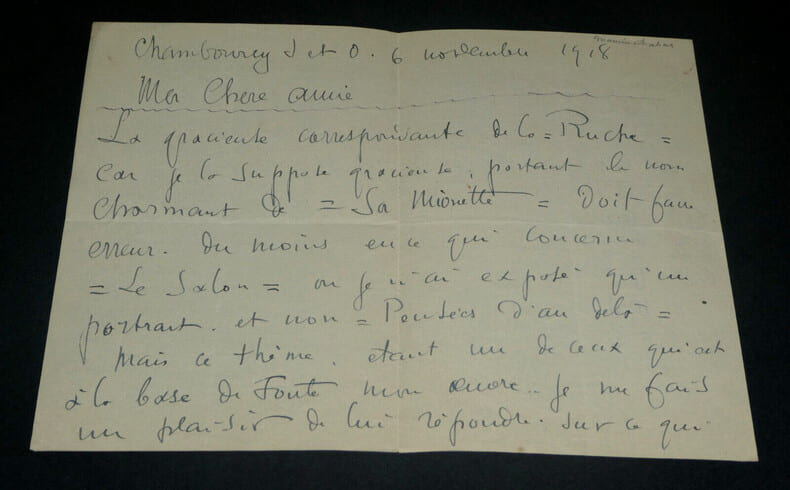 Chambourcy S et O. 6 novembre 1918
Ma Chere amie
La gracieuse correspondante de la = Ruche =
Car je la suppose gracieuse, portant le nom
charmant de = La Mionette = Doit faire
erreur. du moins en ce qui concerne
= Le Salon = ou je n'ai exposé qu'un
portrait. et non = Pensées d'au delà =
Mais ce thème, etant un de ceux qui est
à la base de toute mon œuvre.. je me fais
un plaisir de lui répondre. sur ce qui